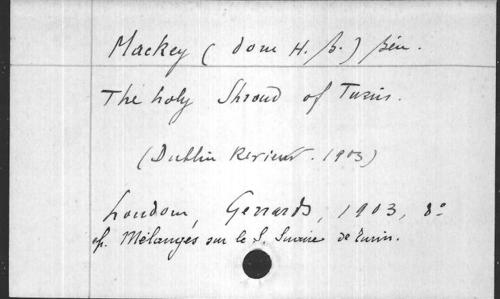 Mackey (dom H. B.) bén.
The holy Shroud of Turin.
(Dublin Review. 1903)
London, Gerrards, 1903, 8º
cf. Mélanges sur le S. Suaire de Turin.